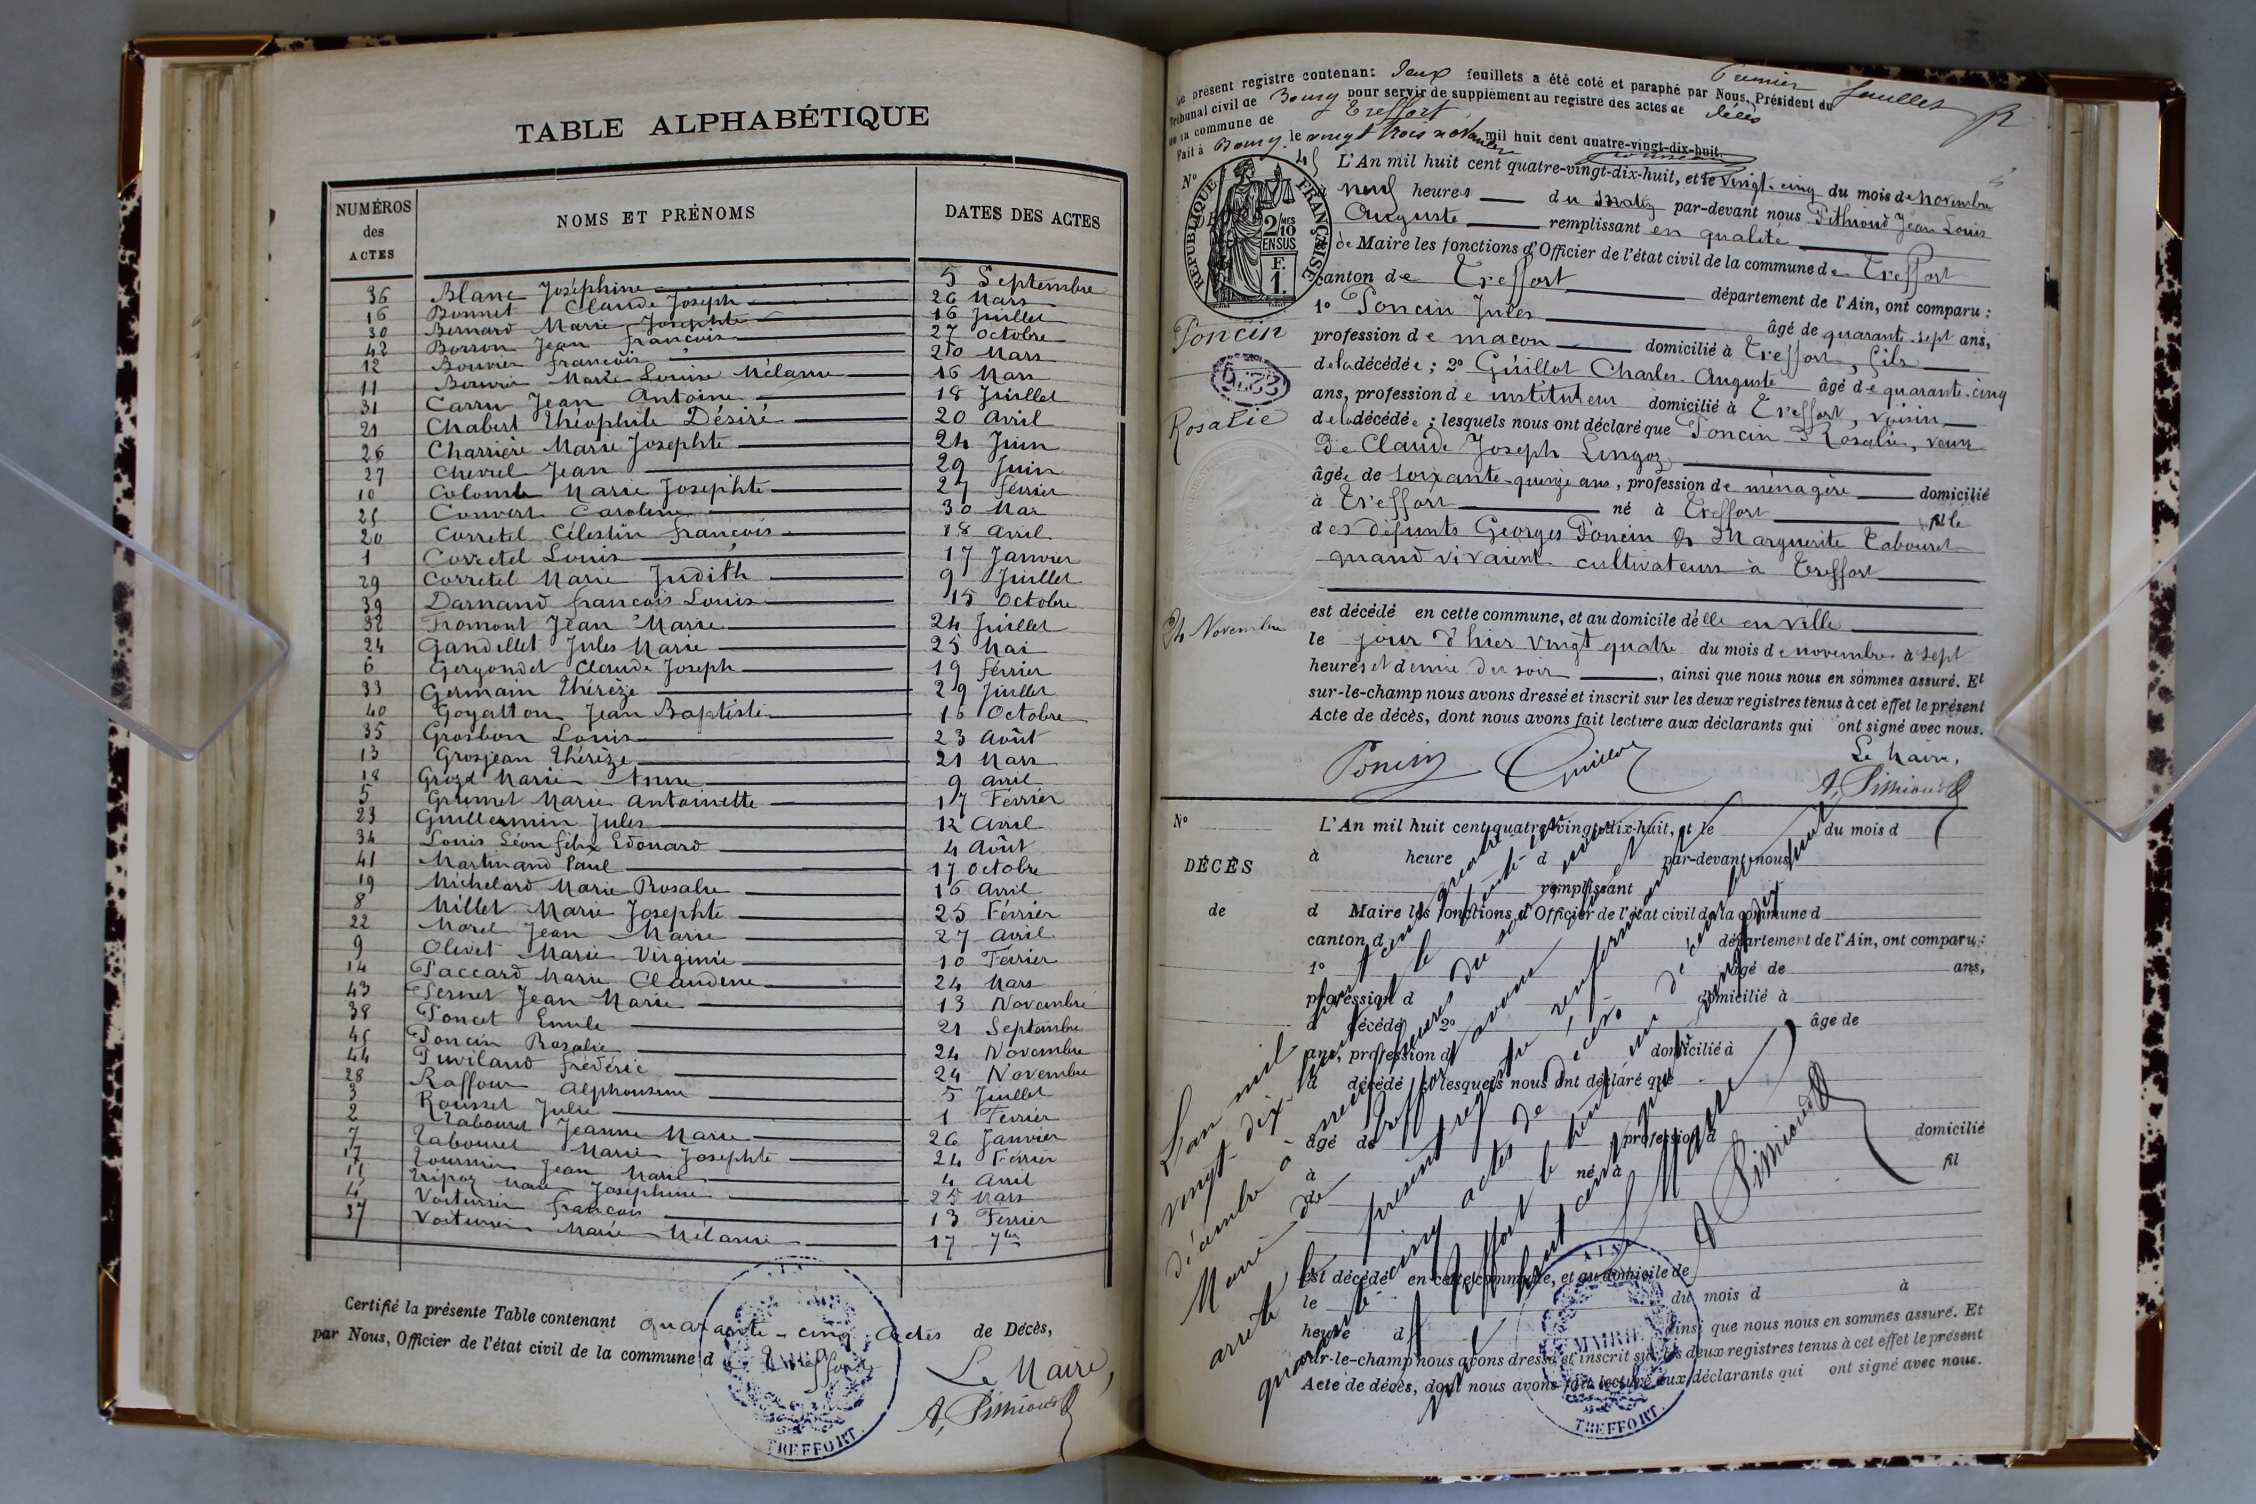 TABLE ALPHABÉTIQUE
NUMÉROS des ACTES NOMS ET PRÉNOMS DATES DES ACTES
36 Blanc Joséphine 5 Septembre
16 Bonnet Claude Joseph 26 Mars
30 Bernard Marie Josephte 16 Juillet
42 Borron Jean François 27 Octobre
12 Bouvier François 20 Mars
11 Bouvier Marie Louise Mélanie 16 Mars
31 Carru Jean Antoine 18 Juillet
21 Chabert Théophile Désiré 20 Avril
26 Charrière Marie Josephte 24 Juin
27 Chevrel Jean 29 Juin
10 Colomb Marie Josephte 27 février
25 Convert Caroline 30 Mai
20 Corretel Célestin François 18 Avril
1 Corretel Louis 17 Janvier
29 Corretel Marie Judith 9 Juillet
39 Darnand François Louis 15 Octobre
32 Fromont Jean Marie 24 Juillet
24 Gandellet Jules Marie 25 Mai
6 Gergondet Claude Joseph 19 février
33 Germain Thérèze 29 Juillet
40 Goyatton Jean Baptiste 16 Octobre
35 Grosbon Louis 23 Août
13 Grosjean Thérèze 21 Mars
18 Grozd Marie Anne 9 Avril
5 Grumet Marie Antoinette 17 Février
23 Guillermin Jules 12 Avril
34 Louis Léon Félix Edouard 4 Août
41 Martinand Paul 17 Octobre
19 Michelard Marie Rosalie 16 Avril
8 Millet Marie Josephte 25 Février
22 Morel Jean Marie 27 Avril
9 Olivet Marie Virginie 10 Février
14 Paccard Marie Claudine 24 Mars
43 Pernet Jean Marie 13 Novembre
38 Poncet Emile 21 Septembre
45 Poncin Rosalie 24 Novembre
44 Puviland Frédéric 24 Novembre
28 Raffour Alphonsine 5 Juillet
3 Rousset Julie 1 Février
2 Tabouret Jeanne Marie 26 Janvier
7 Tabouret Marie Josephte 24 Février
17 Tournier Jean Marie 4 Avril
15 Tripoz Marie Joséphine 25 Mars
4 Voiturier François 13 Février
37 Voiturier Marie Mélanie 17 7bre
Certifié la présente Table contenant quarante-cinq actes de Décès,
par Nous, Officier de l'état civil de la commune d e Treffort
Le Maire,
A. Pithioud
MAIRIE
TREFFORT.
Premier feuillet
Le présent registre contenant deux feuillets a été coté et paraphé par Nous, Président du
Tribunal civil de Bourg pour servir de supplément au registre des actes de décès
de la commune de Treffort
Fait à Bourg, le vingt trois novembre mil huit cent quatre-vingt-dix-huit.
RÉPUBLIQUE FRANÇAISE
2/10 MES EN SUS
F. 1.
N° 45 L'An mil huit cent quatre-vingt-dix-huit, et le vingt-cinq du mois de novembre
à neuf heures du matin par-devant nous Pithioud Jean Louis
Auguste remplissant en qualité
de Maire les fonctions d'Officier de l'état civil de la commune de Treffort
canton de Treffort département de l'Ain, ont comparu :
1° Poncin Jules âgé de quarante-sept ans,
Poncin profession de maçon domicilié à Treffort, fils
de la décédée ; 2° Guillot Charles Auguste âgé de quarante-cinq
ans, profession de instituteur domicilié à Treffort, voisin
Rosalie de la décédée ; lesquels nous ont déclaré que Poncin Rosalie, veuve
de Claude Joseph Lingoz
âgée de soixante-quinze ans, profession de ménagère domicilié
à Treffort né à Treffort fille
des défunts Georges Poncin & Marguerite Tabouret
quand vivaient cultivateurs à Treffort
24 Novembre est décédé en cette commune, et au domicile d'elle en ville
le jour d'hier vingt quatre du mois de novembre à sept
heures et demie du soir, ainsi que nous nous en sommes assuré. Et
sur-le-champ nous avons dressé et inscrit sur les deux registres tenus à cet effet le présent
Acte de décès, dont nous avons fait lecture aux déclarants qui ont signé avec nous.
Le Maire,
Poncin Guillot A. Pithioud
N° L'An mil huit cent quatre-vingt-dix-huit, et le du mois d
à heure d par-devant nous
DÉCÈS remplissant
de d Maire les fonctions d'Officier de l'état civil de la commune d
canton d département de l'Ain, ont comparu :
1° âgé de ans,
profession d domicilié à
d décédé 2° âgé de
ans, profession d domicilié à
d décédé lesquels nous ont déclaré que
âgé de profession d domicilié
à né à fil
est décédé en cette commune, et au domicile de
le du mois d à
heure d ainsi que nous nous en sommes assuré. Et
sur-le-champ nous avons dressé et inscrit sur les deux registres tenus à cet effet le présent
Acte de décès, dont nous avons fait lecture aux déclarants qui ont signé avec nous.
L'an mil huit cent quatre
vingt dix huit et le trente-et-un
décembre à neuf heures du soir nous
Maire de Treffort avons clos et
arrêté le présent registre renfermant
quarante-cinq actes de décès
Treffort le trente un décembre
mil huit cent quatre vingt dix huit
Le Maire
A Pithioud
AIN
MAIRIE
TREFFORT.